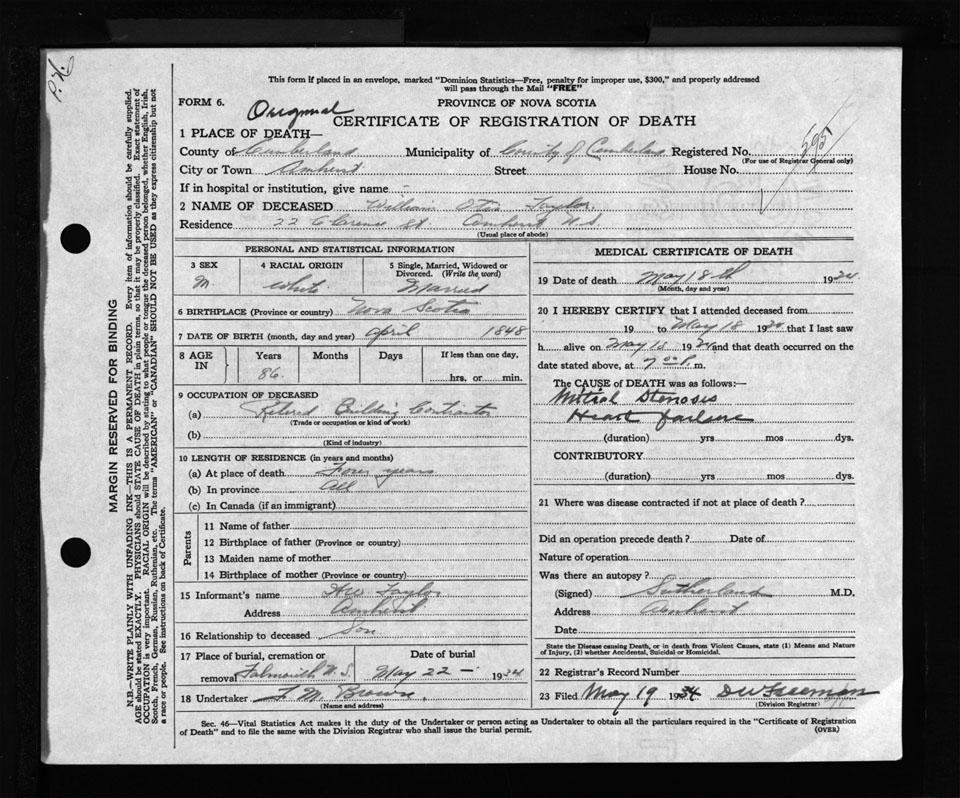 P. H.
This form if placed in an envelope, marked "Dominion Statistics—Free, penalty for improper use, $300," and properly addressed
will pass through the Mail "FREE"
FORM 6. Original PROVINCE OF NOVA SCOTIA
CERTIFICATE OF REGISTRATION OF DEATH
1 PLACE OF DEATH—
County of Cumberland Municipality of County of Cumberland Registered No. 595
(For use of Registrar General only)
City or Town Amherst Street House No.
If in hospital or institution, give name -
2 NAME OF DECEASED William Otis Taylor.
Residence 22 Clarence St. Amherst N.S.
(Usual place of abode)
PERSONAL AND STATISTICAL INFORMATION
3 SEX 4 RACIAL ORIGIN 5 Single, Married, Widowed or
Divorced. (Write the word)
M. White Married
6 BIRTHPLACE (Province or country) Nova Scotia
7 DATE OF BIRTH (month, day and year) April 1848
8 AGE IN Years Months Days If less than one day,
86. hrs. or min.
9 OCCUPATION OF DECEASED
(a) Retired Building Contractor
(Trade or occupation or kind of work)
(b)
(Kind of industry)
10 LENGTH OF RESIDENCE (in years and months)
(a) At place of death Four years
(b) In province All
(c) In Canada (if an immigrant)
Parents
11 Name of father
12 Birthplace of father (Province or country)
13 Maiden name of mother
14 Birthplace of mother (Province or country)
15 Informant's name Taylor
Address Amherst
16 Relationship to deceased Son
17 Place of burial, cremation or Date of burial
removal Falmouth N.S. May 22 - 1934
18 Undertaker F. M. Brown.
(Name and address)
MEDICAL CERTIFICATE OF DEATH
19 Date of death May 18th 1934.
(Month, day and year)
20 I HEREBY CERTIFY that I attended deceased from
19 to May 18 1934 that I last saw
h alive on May 18 1934 and that death occurred on the
date stated above, at 7 00 P. m.
The CAUSE of DEATH was as follows:—
Mitral Stenosis
Heart failure
(duration) yrs mos dys.
CONTRIBUTORY
(duration) yrs mos dys.
21 Where was disease contracted if not at place of death?
Did an operation precede death? Date of
Nature of operation
Was there an autopsy?
(Signed) Sutherland M.D.
Address Amherst
Date
State the Disease causing Death, or in death from Violent Causes, state (1) Means and Nature
of Injury, (2) whether Accidental, Suicidal or Homicidal.
22 Registrar's Record Number
23 Filed May 19 1934 D W Freeman
(Division Registrar)
Sec. 46—Vital Statistics Act makes it the duty of the Undertaker or person acting as Undertaker to obtain all the particulars required in the "Certificate of Registration
of Death" and to file the same with the Division Registrar who shall issue the burial permit. (OVER)
MARGIN RESERVED FOR BINDING
N.B.—WRITE PLAINLY WITH UNFADING INK—THIS IS A PERMANENT RECORD. Every item of information should be carefully supplied.
AGE should be stated EXACTLY. PHYSICIANS should STATE CAUSE OF DEATH in plain terms, so that it may be properly classified. Exact statement of
OCCUPATION is very important. RACIAL ORIGIN will be described by stating to what people or tongue the deceased person belonged, whether English, Irish,
Scotch, French, German, Russian, Ruthenian, etc. The terms "AMERICAN" or "CANADIAN" SHOULD NOT BE USED as they express citizenship but not
a race or people. See instructions on back of Certificate.